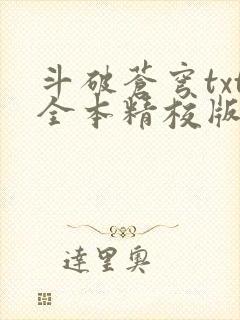 斗破蒼穹txt
全本精校版
達里奧